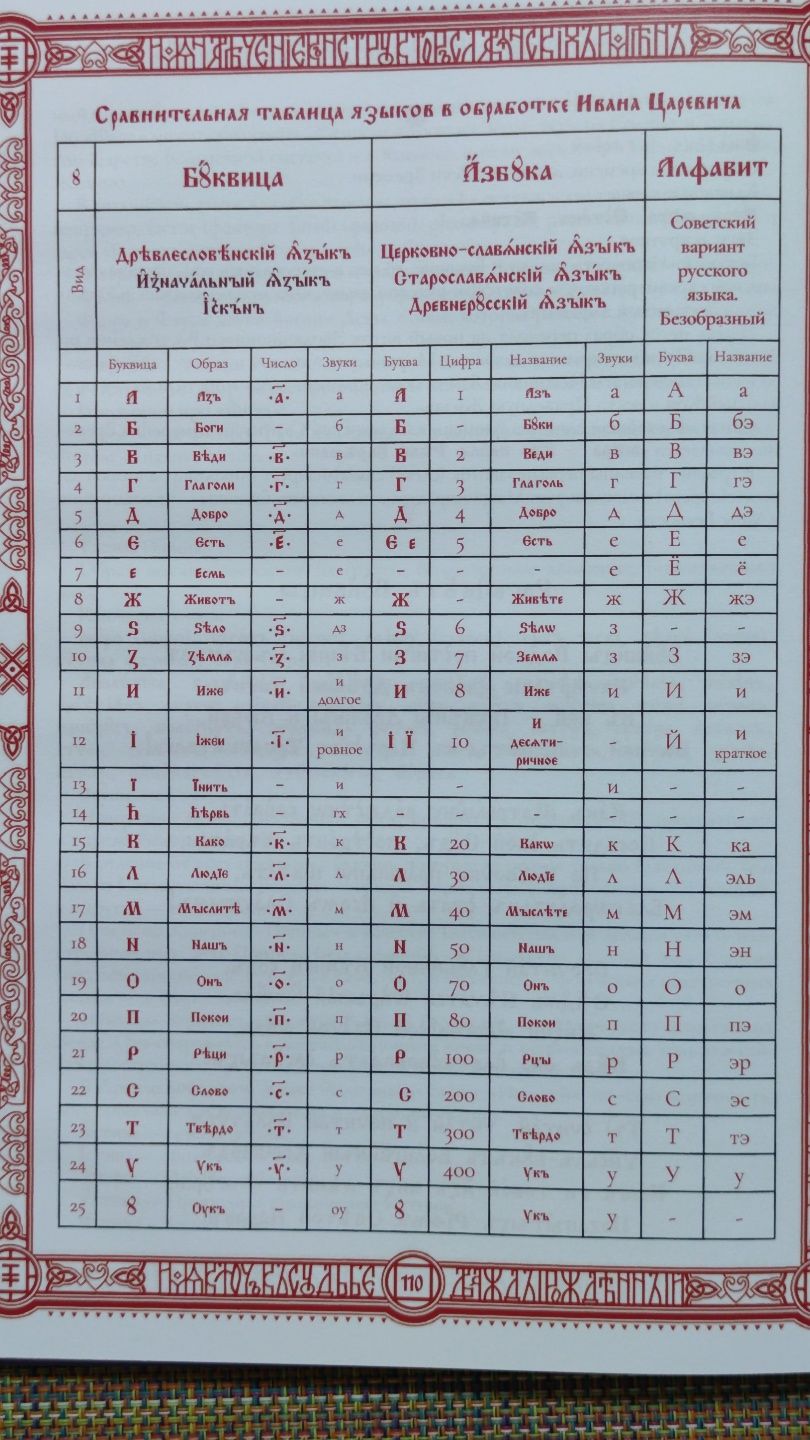 Сравнительная таблица языков в обработке Ивана Царевича
ȣ Бȣквица Азбȣка Алфавит
Вид
Древлесловѣнскій Ѩзы́къ
Изнача́льный Ѩзы́къ
Церковно-славѧ́нскій Ѩзы́къ
Старославѧ́нскій Ѩзы́къ
Древнерȣ́сскій Ѩзы́къ
Советский
вариант
русского
языка.
Безобразный
Буквица Образ Число Звуки Буква Цифра Название Звуки Буква Название
1 А Азъ ·а҃· а А 1 Азъ а А а
2 Б Боги – б Б - Бȣки б Б бэ
3 В Вѣди ·в҃· в В 2 Веди в В вэ
4 Г Глаголи ·г҃· г Г 3 Глаголь г Г гэ
5 Д Добро ·д҃· д Д 4 Добро д Д дэ
6 Є Єсть ·є҃· е Є є 5 Єсть е Е е
7 є Єсмь – е - - - е Ё ё
8 Ж Животъ – ж Ж - Живѣте ж Ж жэ
9 Ѕ Ѕѣло ·ѕ҃· дз Ѕ 6 Ѕѣлѡ з - -
10 Ꙁ Ꙁѣмлѧ ·ꙁ҃· з З 7 Землѧ з З зэ
11 И Иже ·и҃· и долгое И 8 Иже и И и
12 І Іжеи ·і҃· и ровное І Ї 10 И десѧти-ричное - Й и краткое
13 Ї Їнить – и - - и -
14 Ћ Ћѣрвь – гх - - - - - -
15 К Како ·к҃· к К 20 Какѡ к К ка
16 Л Людїе ·л҃· л Л 30 Людїе л Л эль
17 М Мыслитѣ ·м҃· м М 40 Мыслѣте м М эм
18 N Nашъ ·n҃· н N 50 Nашъ н Н эн
19 О Онъ ·о҃· о О 70 Онъ о О о
20 П Покои ·п҃· п П 80 Покои п П пэ
21 Р Рѣци ·р҃· р Р 100 Рцы р Р эр
22 С Слово ·с҃· с С 200 Слово с С эс
23 Т Твѣрдо ·т҃· т Т 300 Твѣрдо т Т тэ
24 Ѵ Ѵкъ ·ѵ҃· у Ѵ 400 Ѵкъ у У у
25 ȣ Оукъ – оу ȣ Ѵкъ у - -
110